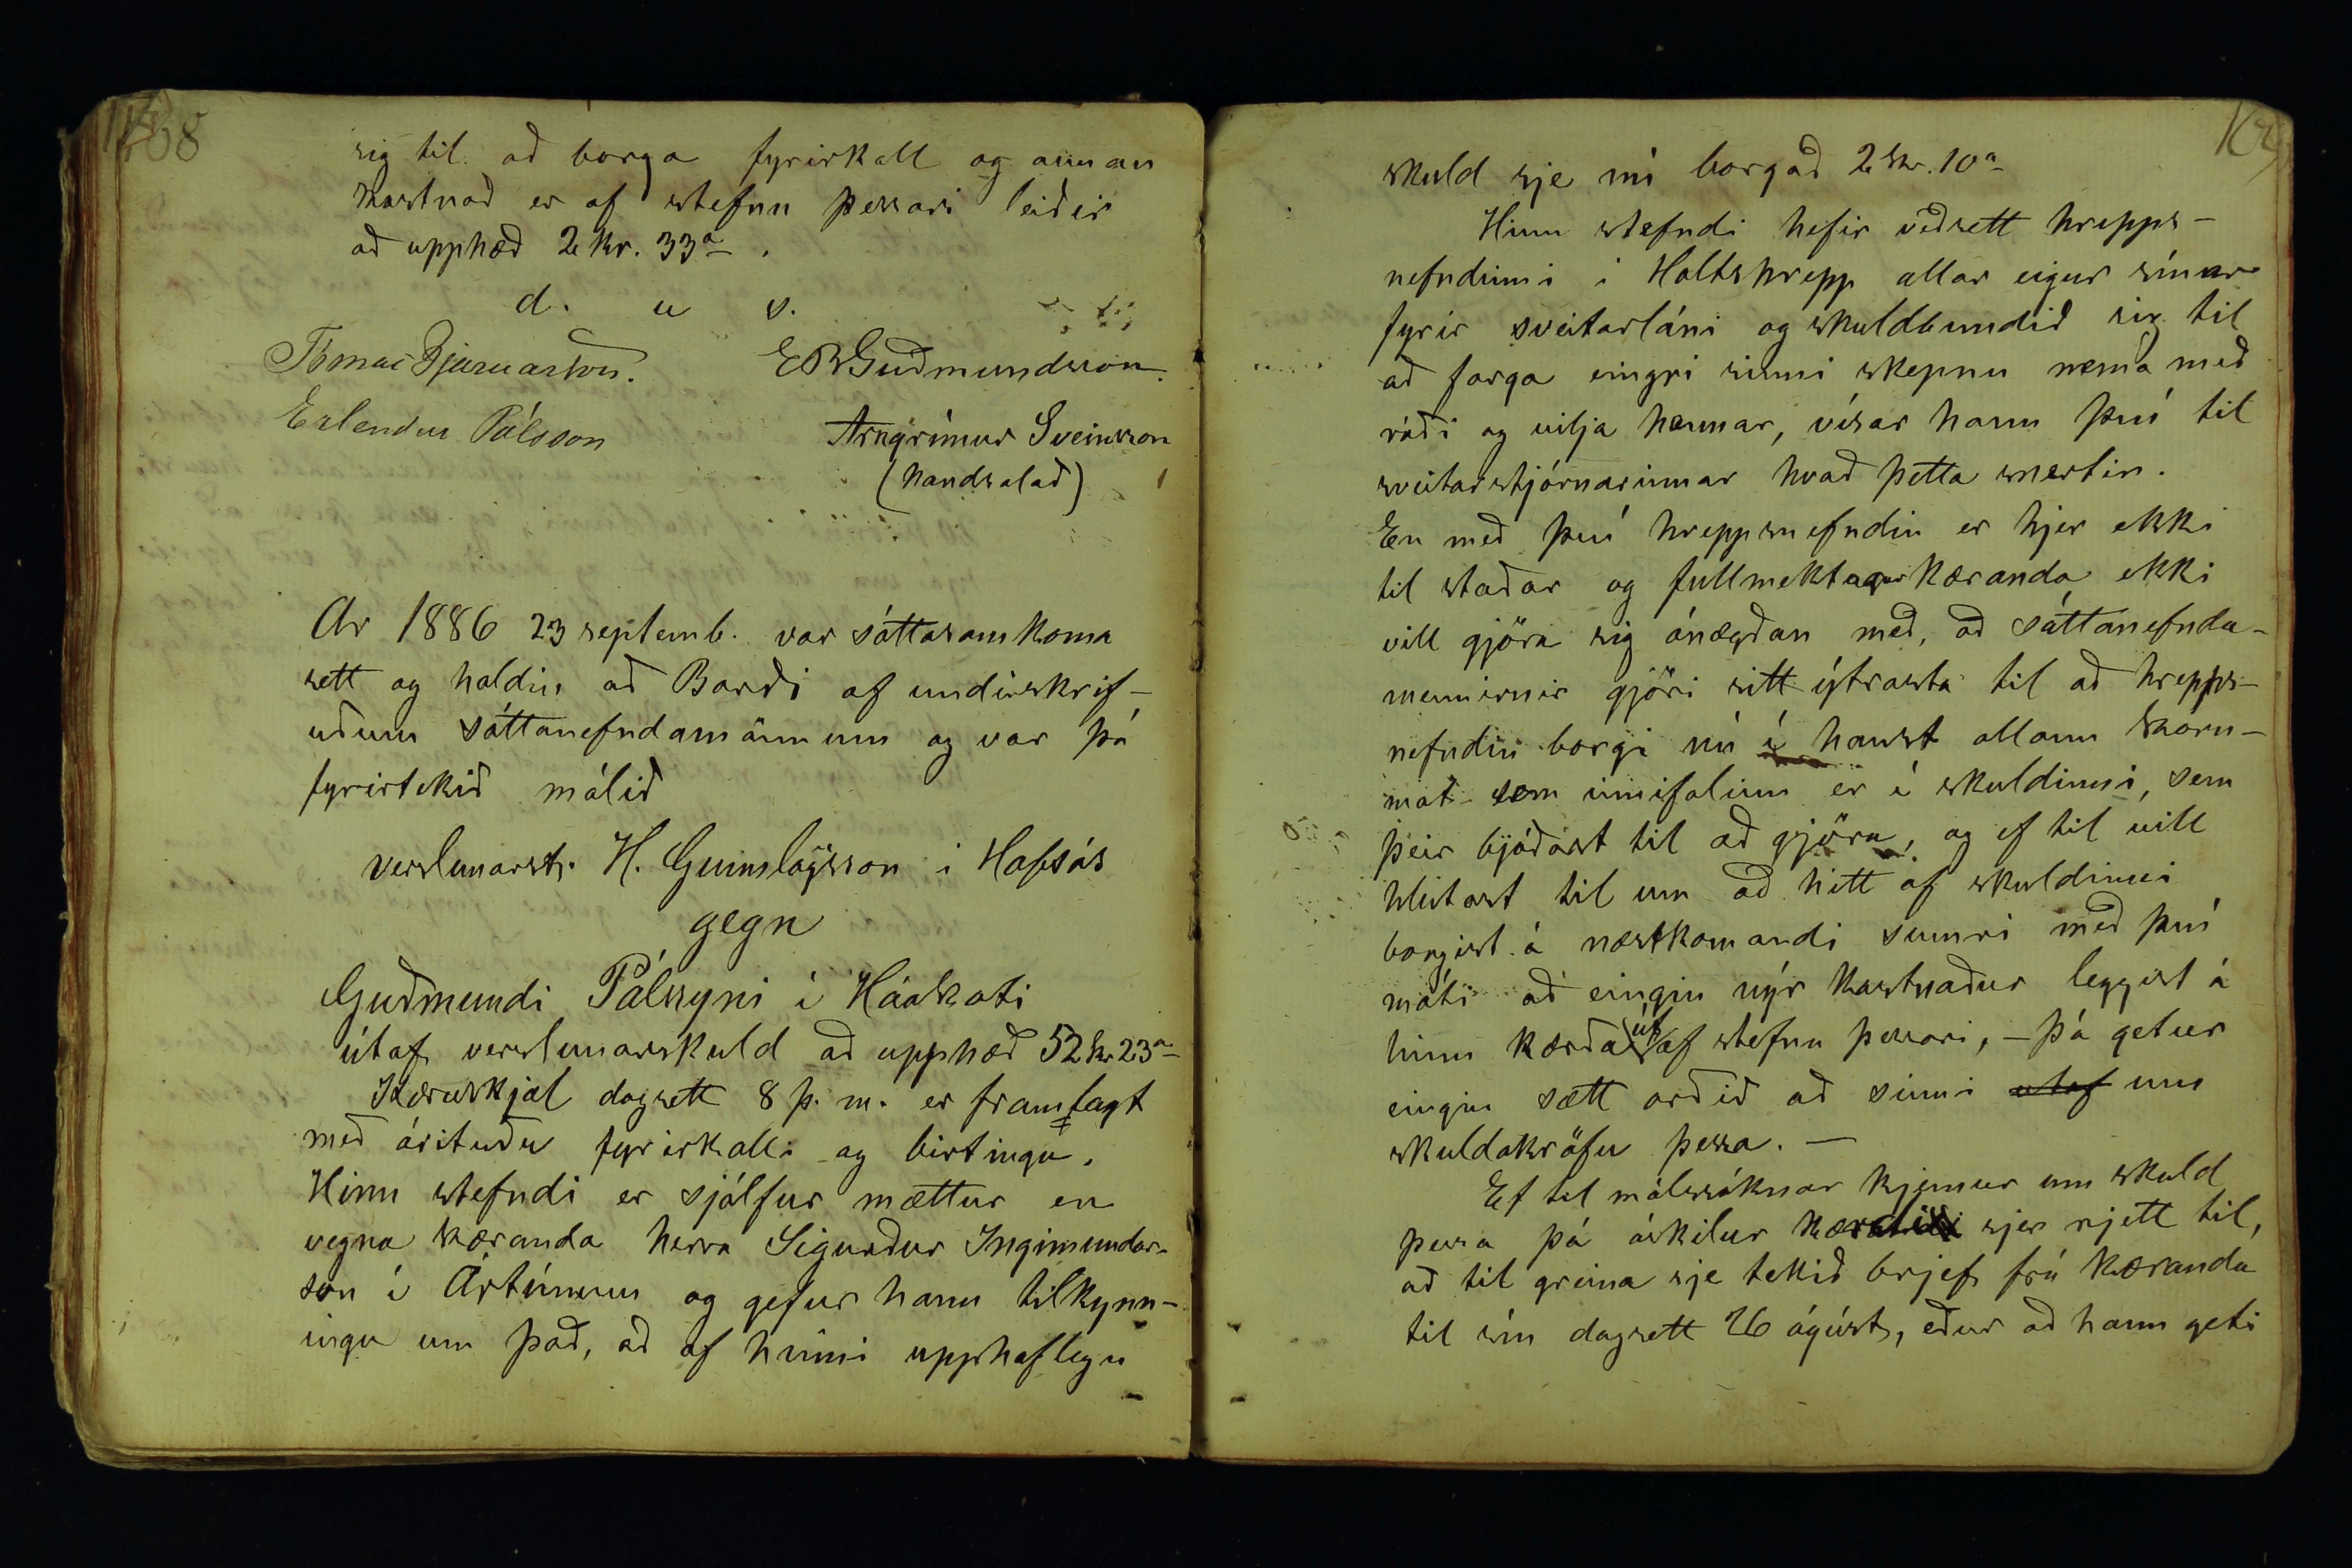 sig til að borga fyrirkall og annan
kostnað er af stefnu þessari leiðir
að upphæð 2 kr. 33 a.
d. u s.
Tómas Bjarnarson. E B Guðmundsson
Erlendur Pálsson Arngrímur Sveinsson
(handsalað)
Ár 1886 23 septemb. var sáttasamkoma
sett og haldin að Barði af undirskrif-
uðum sáttanefndamönnum og var þá
fyrirtekið málið
verslunarstj. H. Gunnlögsson í Hofsós
gegn
Guðmundi Pálssyni í Háakoti
útaf verslunarskuld að upphæð 52 kr 23 a
Kæruskjal dagsett 8 þ. m. er framlagt
með árituðu fyrirkalli og birtingu.
Hinn stefndi er sjálfur mættur en
vegna kæranda herra Sigurður Ingimundar-
son í Ártúnum og gefur hann tilkynn-
ingu um það, að af hinni upphaflegu
skuld sje nú borgað 2 kr. 10 a
Hinn stefndi hefir veðsett hrepps-
nefndinni í Holtshrepp allar eigur sínar
fyrir sveitarláni og skuldbundið sig til
að farga eingri sinni skepnu nema með
ráði og vilja hennar, vísar hann því til
sveitarstjórnarinnar hvað þetta snertir.
En með því hreppsnefndin er hjer ekki
til staðar og fullmektugur kæranda ekki
vill gjöra sig ánægðan með, að sáttanefnda-
mennirnir gjöri sitt ýtrasta til að hrepps-
nefndin borgi nú í haust allann korn-
mat sem innifalinn er í skuldinni, sem
þeir bjóðast til að gjöra, og ef til vill
hlutast til um að hitt af skuldinni
borgist á næstkomandi sumri með því
móti að eingin nýr kostnaður leggist á
hinn kærða út af stefnu þessari, - þá getur
eingin sætt orðið að sinni utaf um
skuldakröfu þessa. -
Ef til málssóknar kjemur um skuld
þessa þá áskilur sjer rjett til,
að til greina sje tekið brjef frá kæranda
til sín dagsett 26 ágúst, eður að hann geti